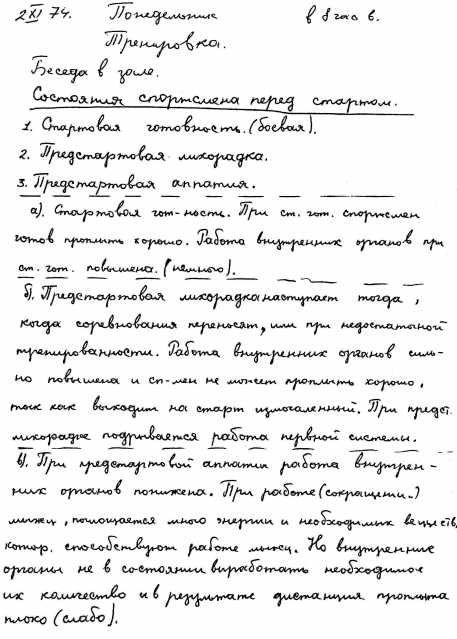 2 XI 74. Понедельник в 8 час в.
Тренировка.
Беседа в зале.
Состояния спортсмена перед стартом.
1. Стартовая готовность. (боевая).
2. Предстартовая лихорадка.
3. Предстартовая аппатия.
а). Стартовая гот-ность. При ст. гот. спортсмен
готов проплыть хорошо. Работа внутренних органов при
ст. гот. повышена. (немного).
б). Предстартовая лихорадка наступает тогда,
когда соревнования переносят, или при недостаточной
тренированности. Работа внутренних органов силь-
но повышена и сп-мен не может проплыть хорошо,
так как выходит на старт измочаленный. При предст.
лихорадке подривается работа нервной системы.
в). При предстартовой аппатии работа внутрен-
них органов понижена. При работе (сокращении)
мышц, поглощается много энергии и необходимих веществ,
котор. способствуют работе мышц. Но внутренние
органы не в состоянии выработать необходимое
их количество и в результате дистанция проплыта
плохо (слабо).